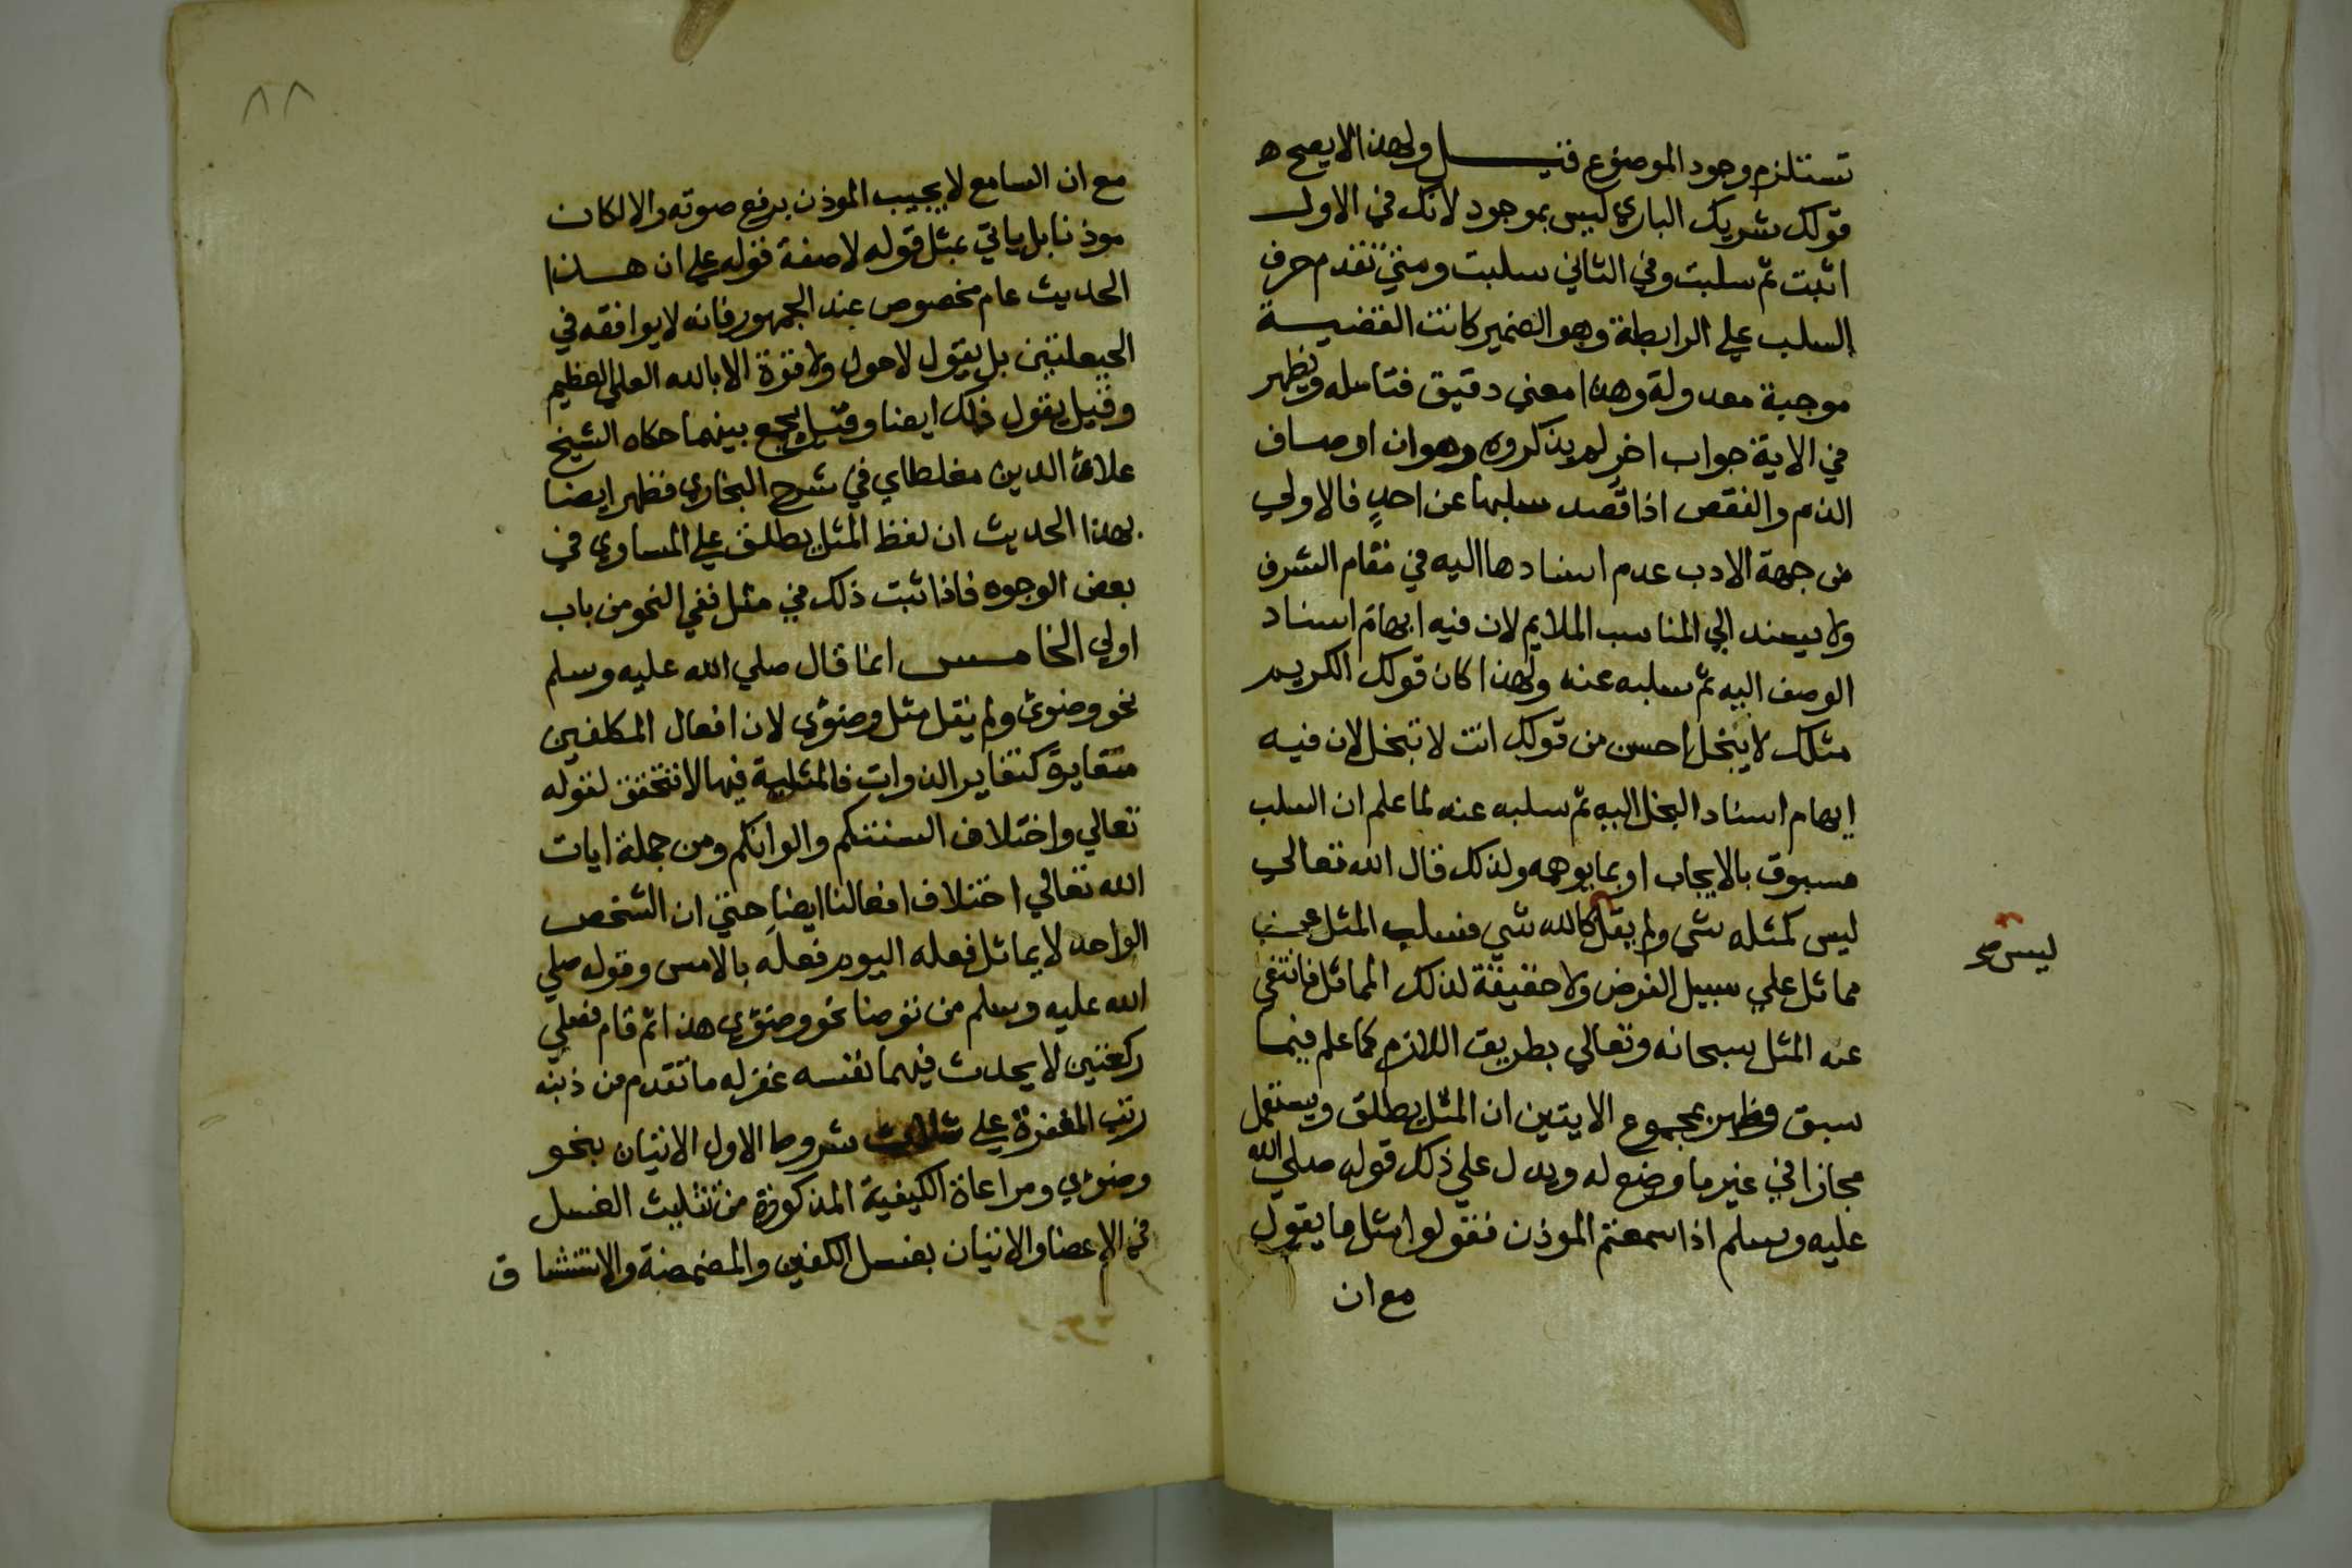 تستلزم وجود الموضوع قيل ولهذا لا يصح
قولك شريك الباري ليس بموجود لانك في الاول
اثبت ثم سلبت وفي الثاني سلبت ومتي تقدم حرف
السلب علي الرابطة وهو الضمير كانت القضية
موجبة معدولة وهذا معني دقيق فتامله ويظهر
في الاية جواب اخر لم يذكروه وهو ان اوصاف
الذم والنقص اذا قصد سلبها عن احد فالاولي
من جهة الادب عدم اسنادها اليه في مقام الشرف
ولا يسند الي المناسب الملايم لان فيه ايهام اسناد
الوصف اليه ثم سلبه عنه ولهذا كان قولك الكريم
مثلك لا يبخل احسن من قولك انت لا تبخل لان فيه
ايهام اسناد البخل اليه ثم سلبه عنه لما علم ان السلب
مسبوق بالايجاب او بما يوهمه ولذلك قال الله تعالي
ليس كمثله شي ولم يقل كالله شي فسلب المثل عن
ليس صح
مماثل علي سبيل الفرض ولا حقيقة لذلك المماثل فانتفي
عنه المثل سبحانه وتعالي بطريق اللازم كما علم فيما
سبق وظهر بمجموع الايتين ان المثل يطلق ويستعمل
مجازا في غير ما وضع له ويدل علي ذلك قوله صلي الله
عليه وسلم اذا سمعتم الموذن فقولوا مثل ما يقول
مع ان
٨٨
مع ان السامع لا يجيب الموذن برفع صوته والا لكان
موذنا بل ياتي بمثل قوله لا صفة قوله علي ان هذا
الحديث عام مخصوص عند الجمهور فانه لا يوافقه في
الحيعلتين بل يقول لا حول ولا قوة الا بالله العلي العظيم
وقيل يقول ذلك ايضا وقيل يجمع بينهما حكاه الشيخ
علاء الدين مغلطاي في شرح البخاري فظهر ايضا
بهذا الحديث ان لفظ المثل يطلق علي المساوي في
بعض الوجوه فاذا ثبت ذلك في مثل ففي النحو من باب
اولي الخامس انما قال صلي الله عليه وسلم
نحو وضوئي ولم يقل مثل وضوئي لان افعال المكلفين
متغايرة كتغاير الذوات فالمثلية فيها لا تتحقق لقوله
تعالي واختلاف السنتكم والوانكم ومن جملة ايات
الله تعالي اختلاف افعالنا ايضا حتي ان الشخص
الواحد لا يماثل فعله اليوم فعله بالامس وقوله صلي
الله عليه وسلم من توضا نحو وضوئي هذا ثم قام فصلي
ركعتين لا يحدث فيهما نفسه غفر له ما تقدم من ذنبه
رتب المغفرة علي ثلاث شروط الاول الاتيان بنحو
وضوئي ومراعاة الكيفية المذكورة من تثليث الغسل
في الاعضا والاتيان بغسل الكفين والمضمضة والاستنشاق